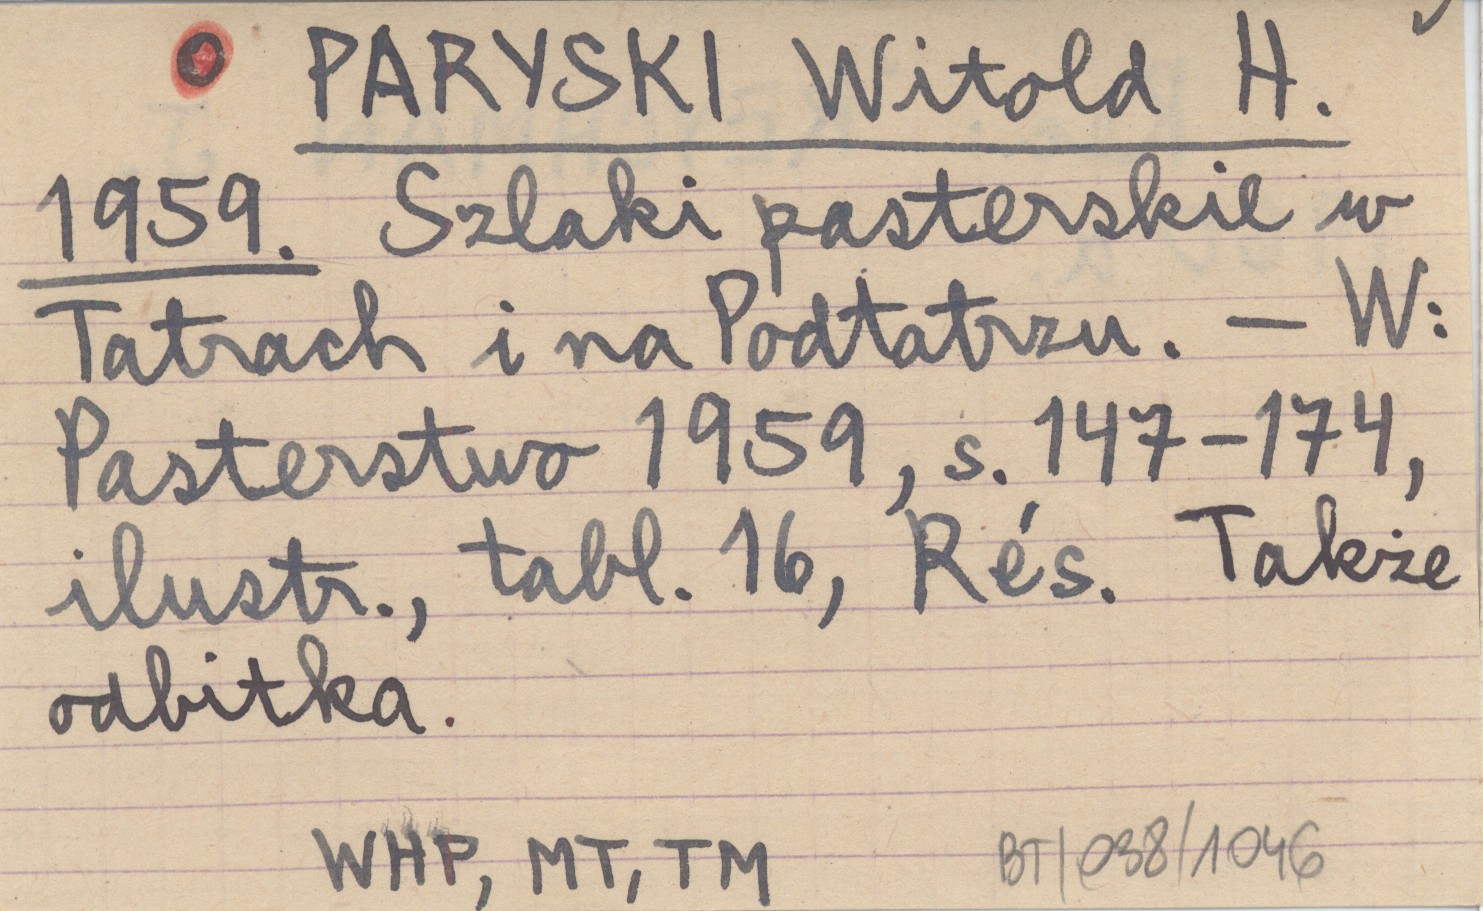 PARYSKI Witold H.
1959. Szlaki pasterskie w
Tatrach i na Podtatrzu. — W:
Pasterstwo 1959, s. 147-174,
ilustr., tabl. 16, Rés. Także
odbitka.
WHP, MT, TM
BT/038/1046